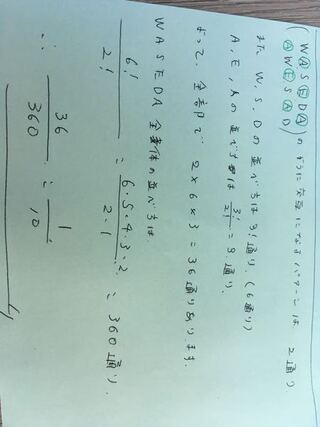 (WASEDA
AWESAD) のように交互になるパターンは 2通り
また W, S, Dの並べ方は 3!通り. (6通り)
A, E, Aの並べ方は 3!/2! = 3通り.
よって、全部で 2×6×3 = 36通りあります.
WASEDA 全体の並べ方は
6!/2! = 6・5・4・3・2/2・1 = 360通り.
∴ 36/360 = 1/10